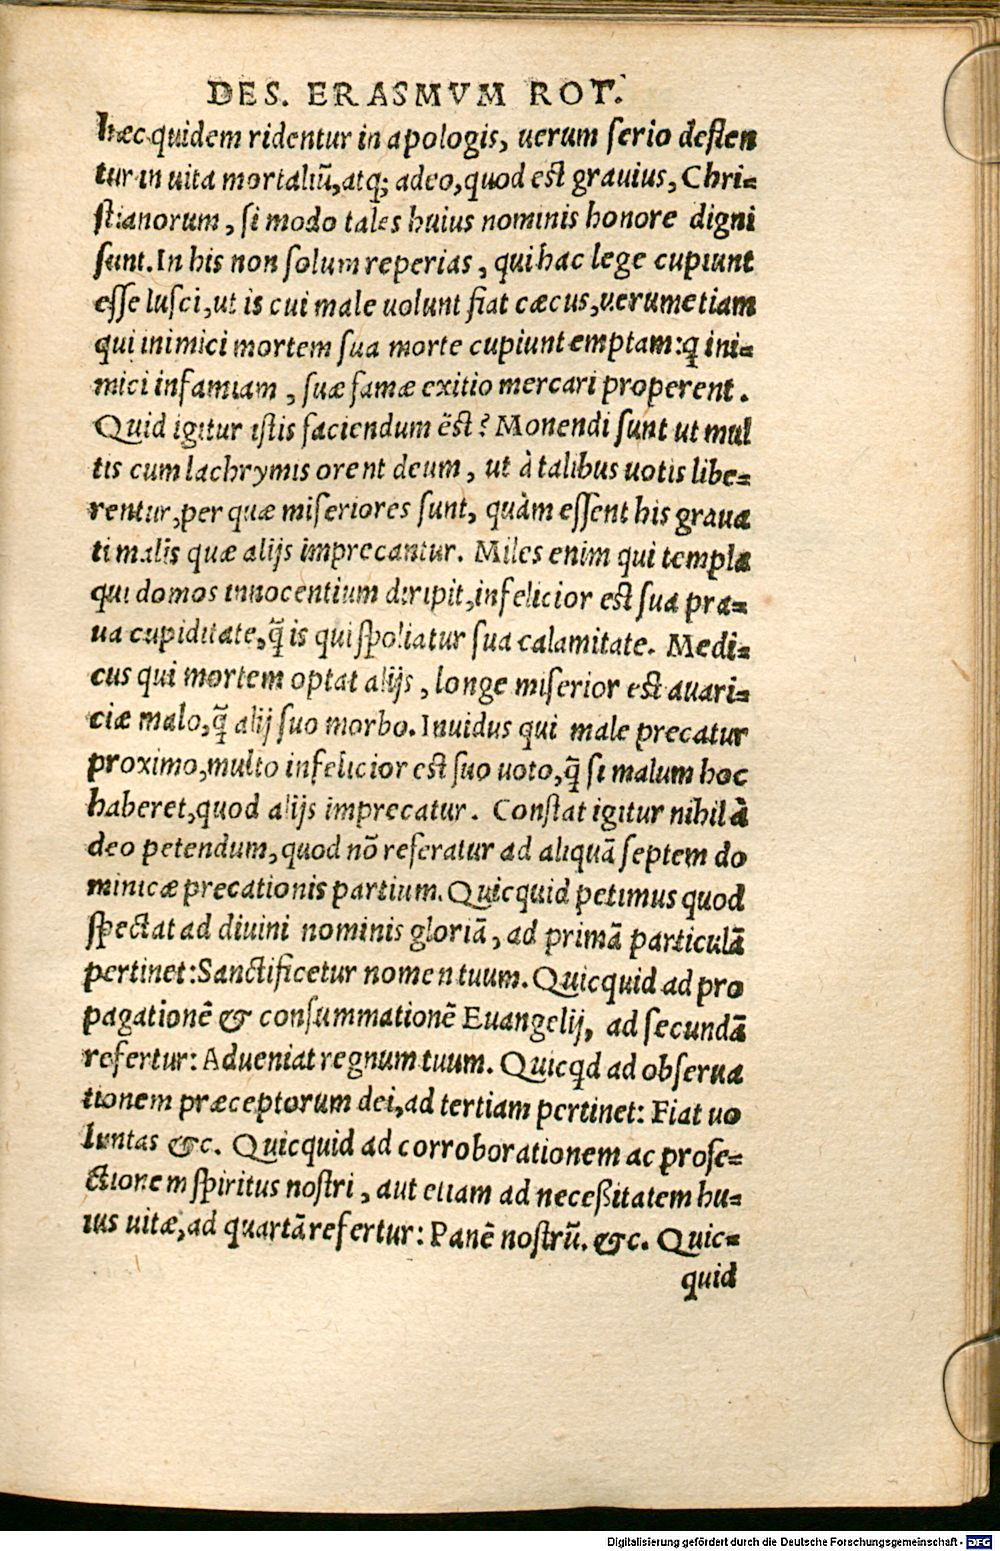 DES. ERASMVM ROT.
Hæc quidem ridentur in apologis, uerum serio deflen
tur in uita mortaliũ, atq; adeo, quod est grauius, Chri=
stianorum, si modo tales huius nominis honore digni
sunt. In his non solum reperias, qui hac lege cupiunt
esse lusci, ut is cui male uolunt fiat cæcus, uerumetiam
qui inimici mortem sua morte cupiunt emptam: q̃ ini=
mici infamiam, suæ famæ exitio mercari properent.
Quid igitur istis faciendum est? Monendi sunt ut mul
tis cum lachrymis orent deum, ut à talibus uotis libe=
rentur, per quæ miseriores sunt, quàm essent his graua
ti malis quæ alijs imprecantur. Miles enim qui templa
qui domos innocentium diripit, infelicior est sua pra=
ua cupiditate, q̃ is qui spoliatur sua calamitate. Medi=
cus qui mortem optat alijs, longe miserior est auari=
ciæ malo, q̃ alij suo morbo. Inuidus qui male precatur
proximo, multo infelicior est suo uoto, q̃ si malum hoc
haberet, quod alijs imprecatur. Constat igitur nihil à
deo petendum, quod nõ referatur ad aliquã septem do
minicæ precationis partium. Quicquid petimus quod
spectat ad diuini nominis gloriã, ad primã particulã
pertinet: Sanctificetur nomen tuum. Quicquid ad pro
pagationẽ & consummationẽ Euangelij, ad secundã
refertur: Adueniat regnum tuum. Quicqd ad obserua
tionem præceptorum dei, ad tertiam pertinet: Fiat uo
luntas &c. Quicquid ad corroborationem ac profe=
ctionem spiritus nostri, aut etiam ad necessitatem hu=
ius uitæ, ad quartã refertur: Panẽ nostrũ. &c. Quic=
quid
Digitalisierung gefördert durch die Deutsche Forschungsgemeinschaft - DFG